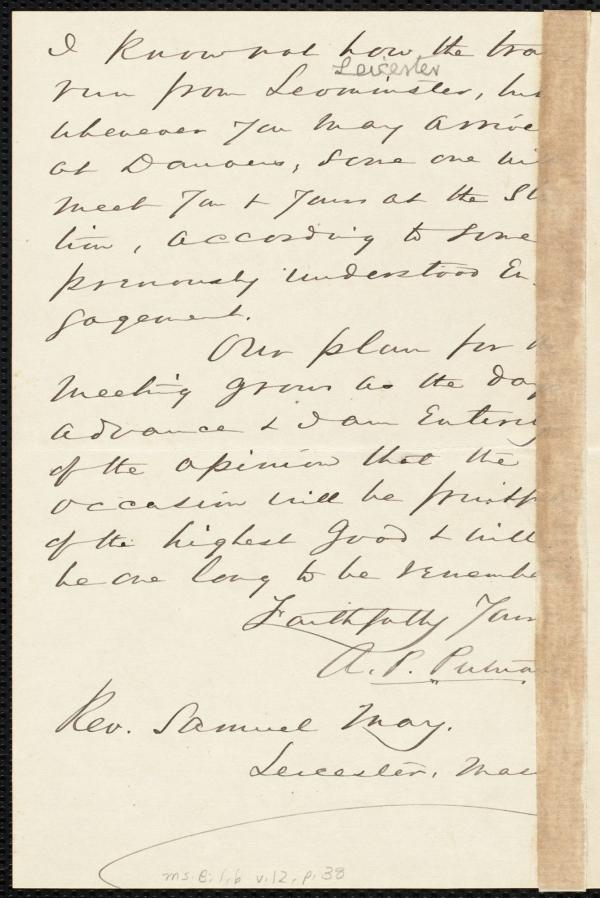 I know not how the tra
Leicester
run from Leominster, but
whenever you may arrive
at Danvers, some one wi
meet you & yours at the Sta
tion, according to some
previously understood En
gagement.
Our plan for
meeting grows as the day
advance & I am Entirely
of the opinion that the
occasion will be fruitf
of the highest good & will
be one long to be remembe
Faithfully Your
A. P. Putna
Rev. Samuel May.
Leicester, Mas
ms. B. 1. 6 v. 12, p. 38